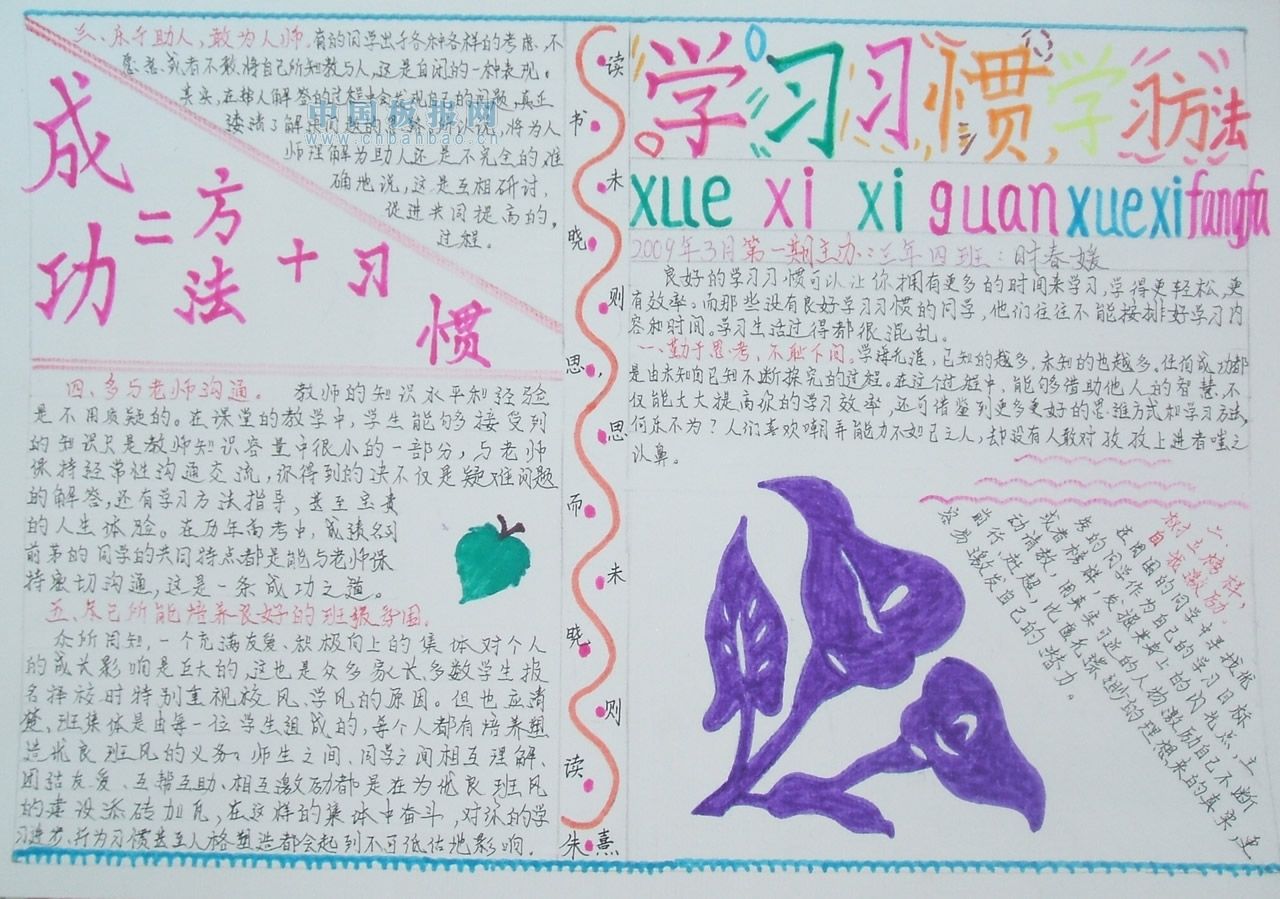 学习习惯学习方法
xue xi xi guan xuexifangfa
2009年3月第一期主办:三年四班:时春媛
良好的学习习惯可以让你拥有更多的时间来学习,学得更轻松,更
有效率。而那些没有良好学习习惯的同学,他们往往不能按排好学习内
容和时间。学习生活过得都很混乱。
一、勤于思考,不耻下问。学海无涯,已知的越多,未知的也越多。任何成功都
是由未知向已知不断探究的过程。在这个过程中,能够借助他人的智慧,不
仅能大大提高你的学习效率,还可借鉴到更多更好的思维方式和学习方法,
何乐不为?人们喜欢嘲弄能力不如己之人,却没有人敢对孜孜上进者嗤之
以鼻。
二、树立榜样,
自我激励。
在周围的同学中寻找优
秀的同学作为自己的学习目标
或者榜样,发掘其身上的闪光点,主
动请教,用真实可近的人物激励自己不断
前行、赶超,比虚无缥缈的理想来的真实,更
容易激发自己的潜力。
读书未晓则思,思而未晓则读
朱熹
三、乐于助人,敢为人师。有的同学出于各种各样的考虑,不
愿意、或者不敢将自己所知教与人,这是自闭的一种表现。
其实,在替人解答的过程中会发现自己的问题,真正
读清了解决问题的 所以说,将为人
师理解为助人还是不完全的准
确地说,这是互相研讨,
促进共同提高的,
过程。
中国板报网
www.cnbanbao.cn
成功=方法+习惯
四、多与老师沟通。 教师的知识水平和经验
是不用质疑的。在课堂的教学中,学生能够接受到
的知识只是教师知识容量中很小的一部分,与老师
保持经常性沟通交流,你得到的决不仅是疑难问题
的解答,还有学习方法指导,甚至宝贵
的人生体验。在历年高考中,成绩名列
前茅的同学的共同特点都是能与老师保
持密切沟通,这是一条成功之道。
五、尽己所能培养良好的班级氛围。
众所周知,一个充满友爱、积极向上的集体对个人
的成长影响是巨大的,这也是众多家长、多数学生报
名择校时特别重视校风、学风的原因。但也应清
楚,班集体是由每一位学生组成的,每个人都有培养塑
造优良班风的义务。师生之间、同学之间相互理解、
团结友爱、互帮互助、相互激励都是在为优良班风
的建设添砖加瓦,在这样的集体中奋斗,对你的学
习进步、行为习惯甚至人格塑造都会起到不可低估地影响。